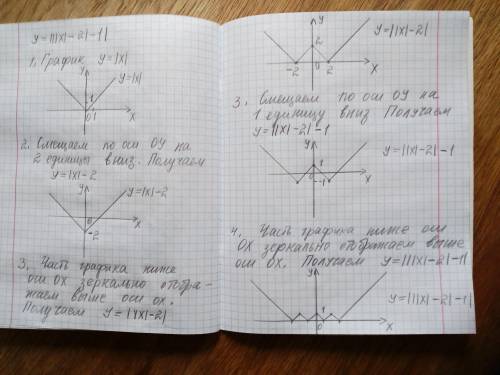 y=|||x|-2|-1|
1. График y=|x|
y
y=|x|
1
0 1
x
2. Смещаем по оси OY на
2 единицы вниз. Получаем
y=|x|-2
y
y=|x|-2
0
x
-2
3. Часть графика ниже
оси OX зеркально отобра-
жаем выше оси ox.
Получаем y=||x|-2|
y
y=||x|-2|
2
-2
0
2
x
3. Смещаем по оси OY на
1 единицу вниз Получаем
y=||x|-2|-1
y
y=||x|-2|-1
1
0
-1
x
4. Часть графика ниже оси
OX зеркально отображаем выше
оси OX. Получаем y=|||x|-2|-1|
y
y=|||x|-2|-1|
1
0
x